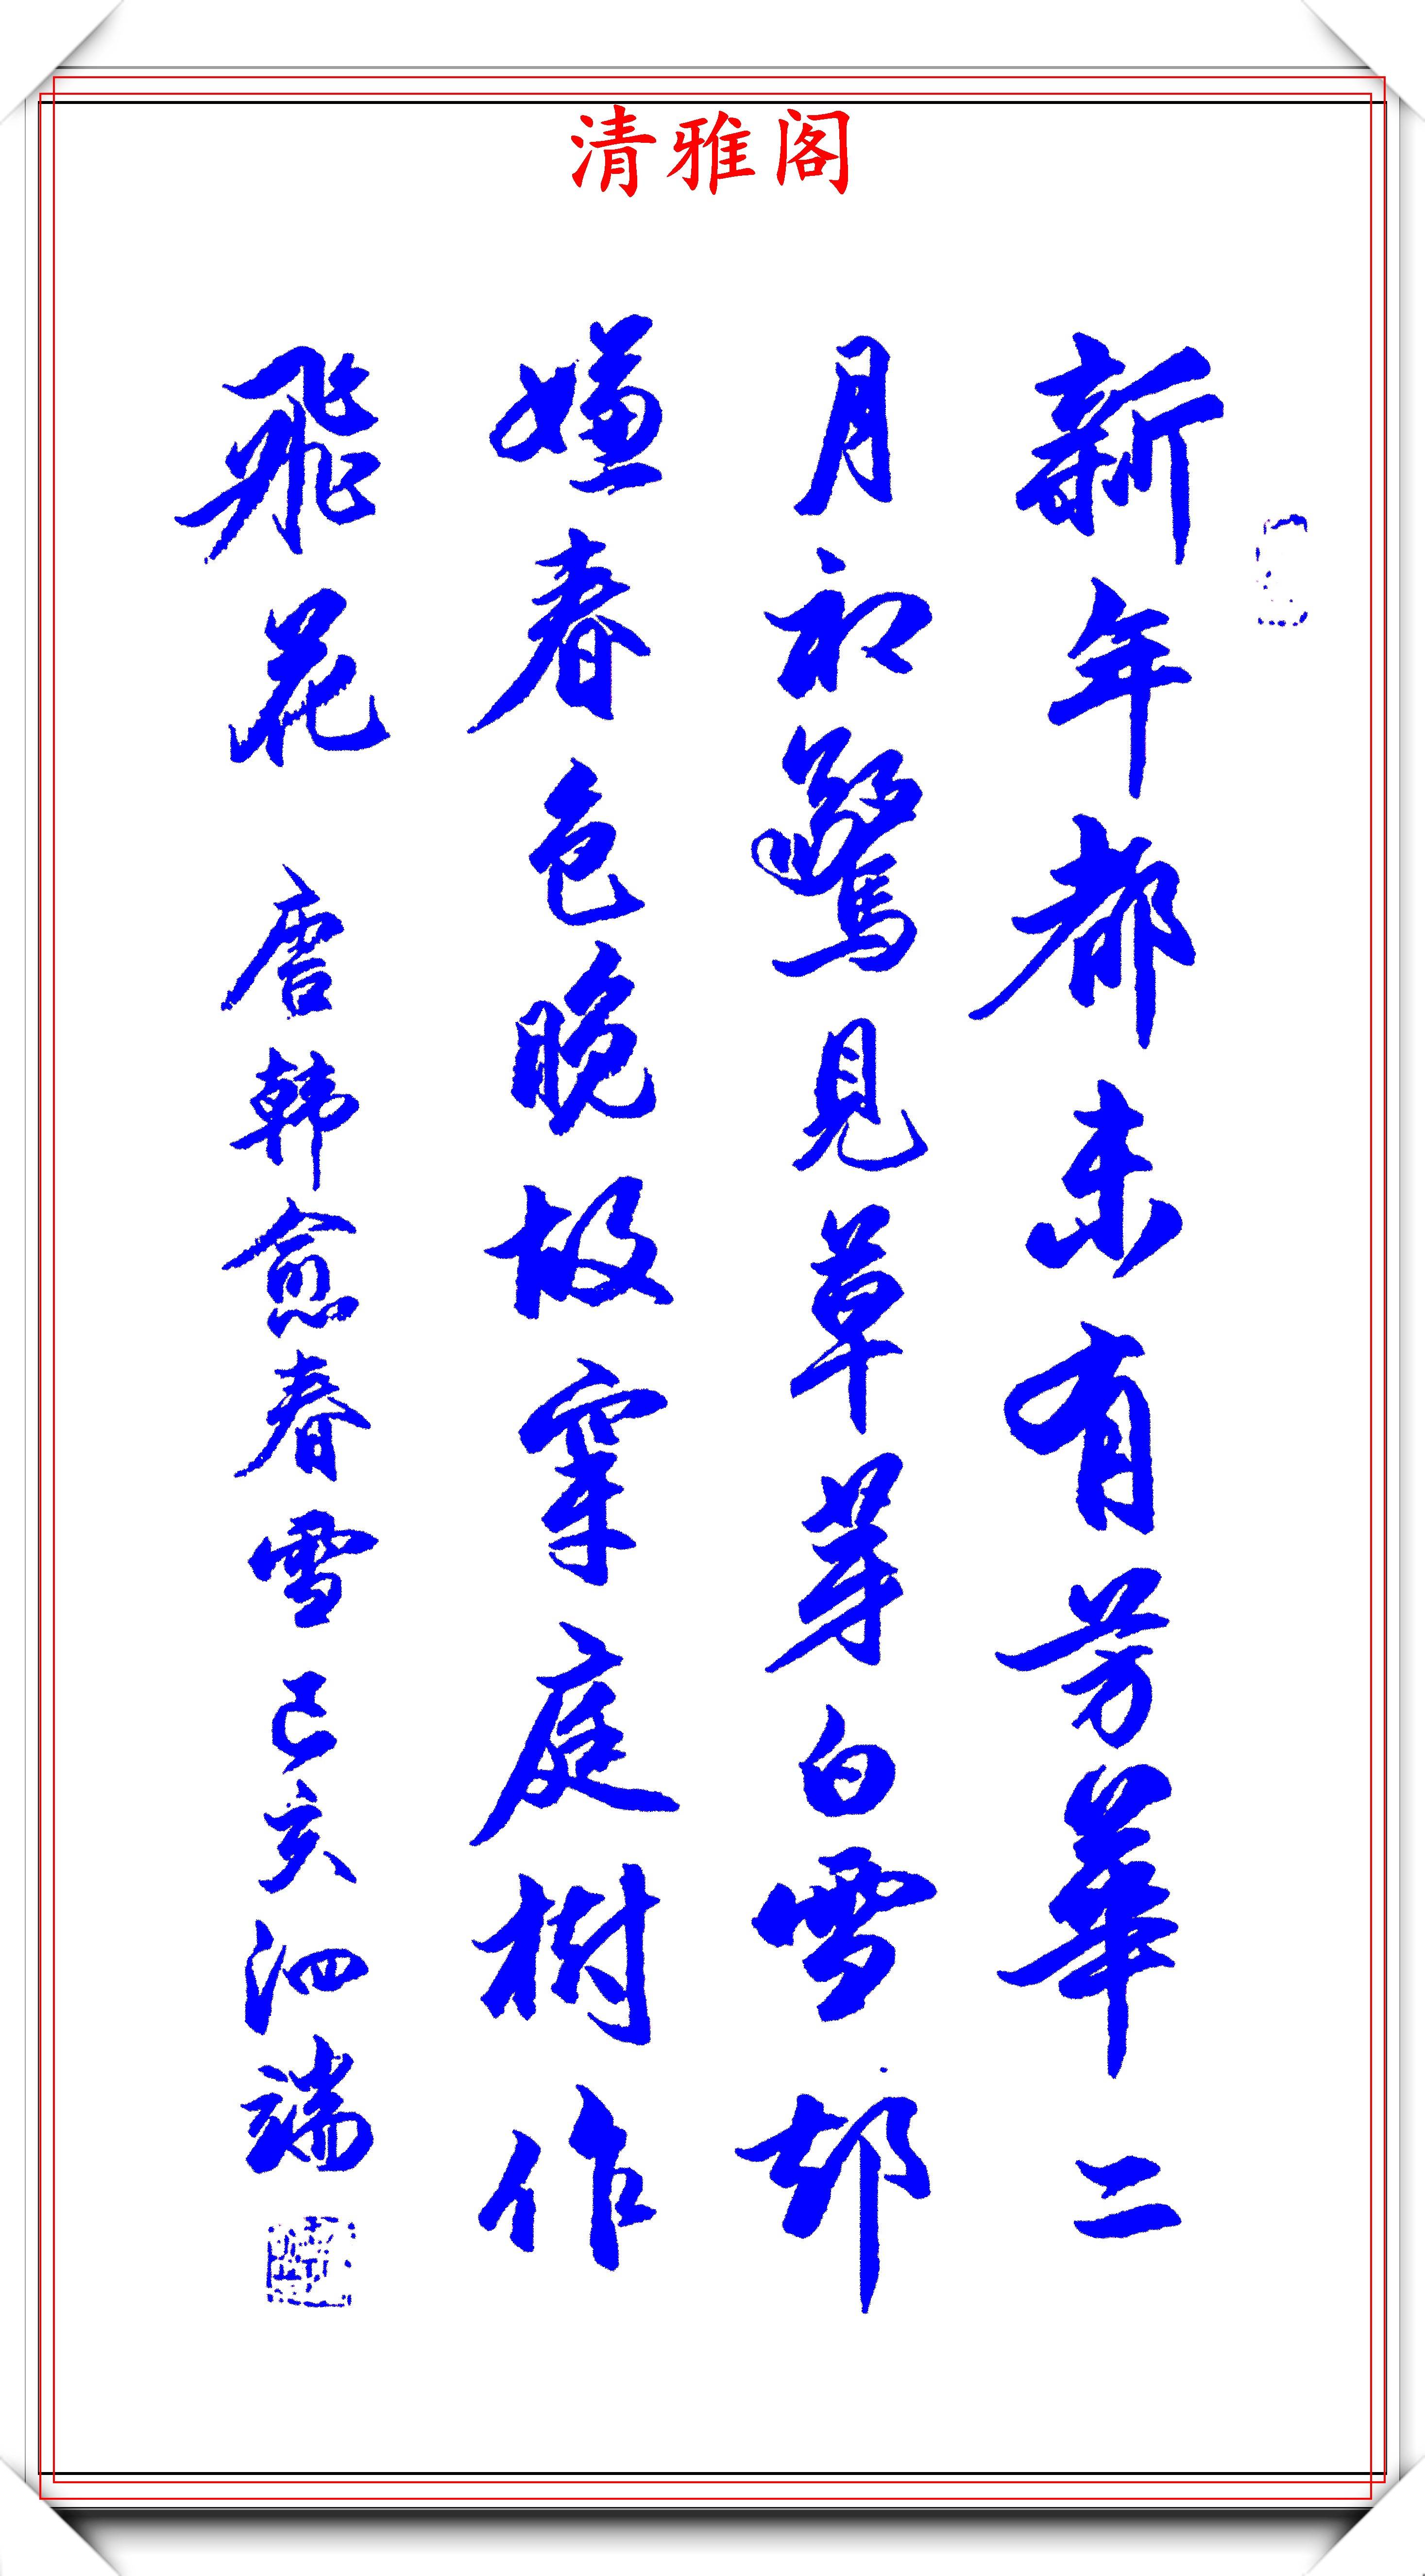 清雅阁
新年都未有芳華二
月初驚見草芽白雪却
嫌春色晚故穿庭樹作
飛花 唐韩愈春雪己亥泗端